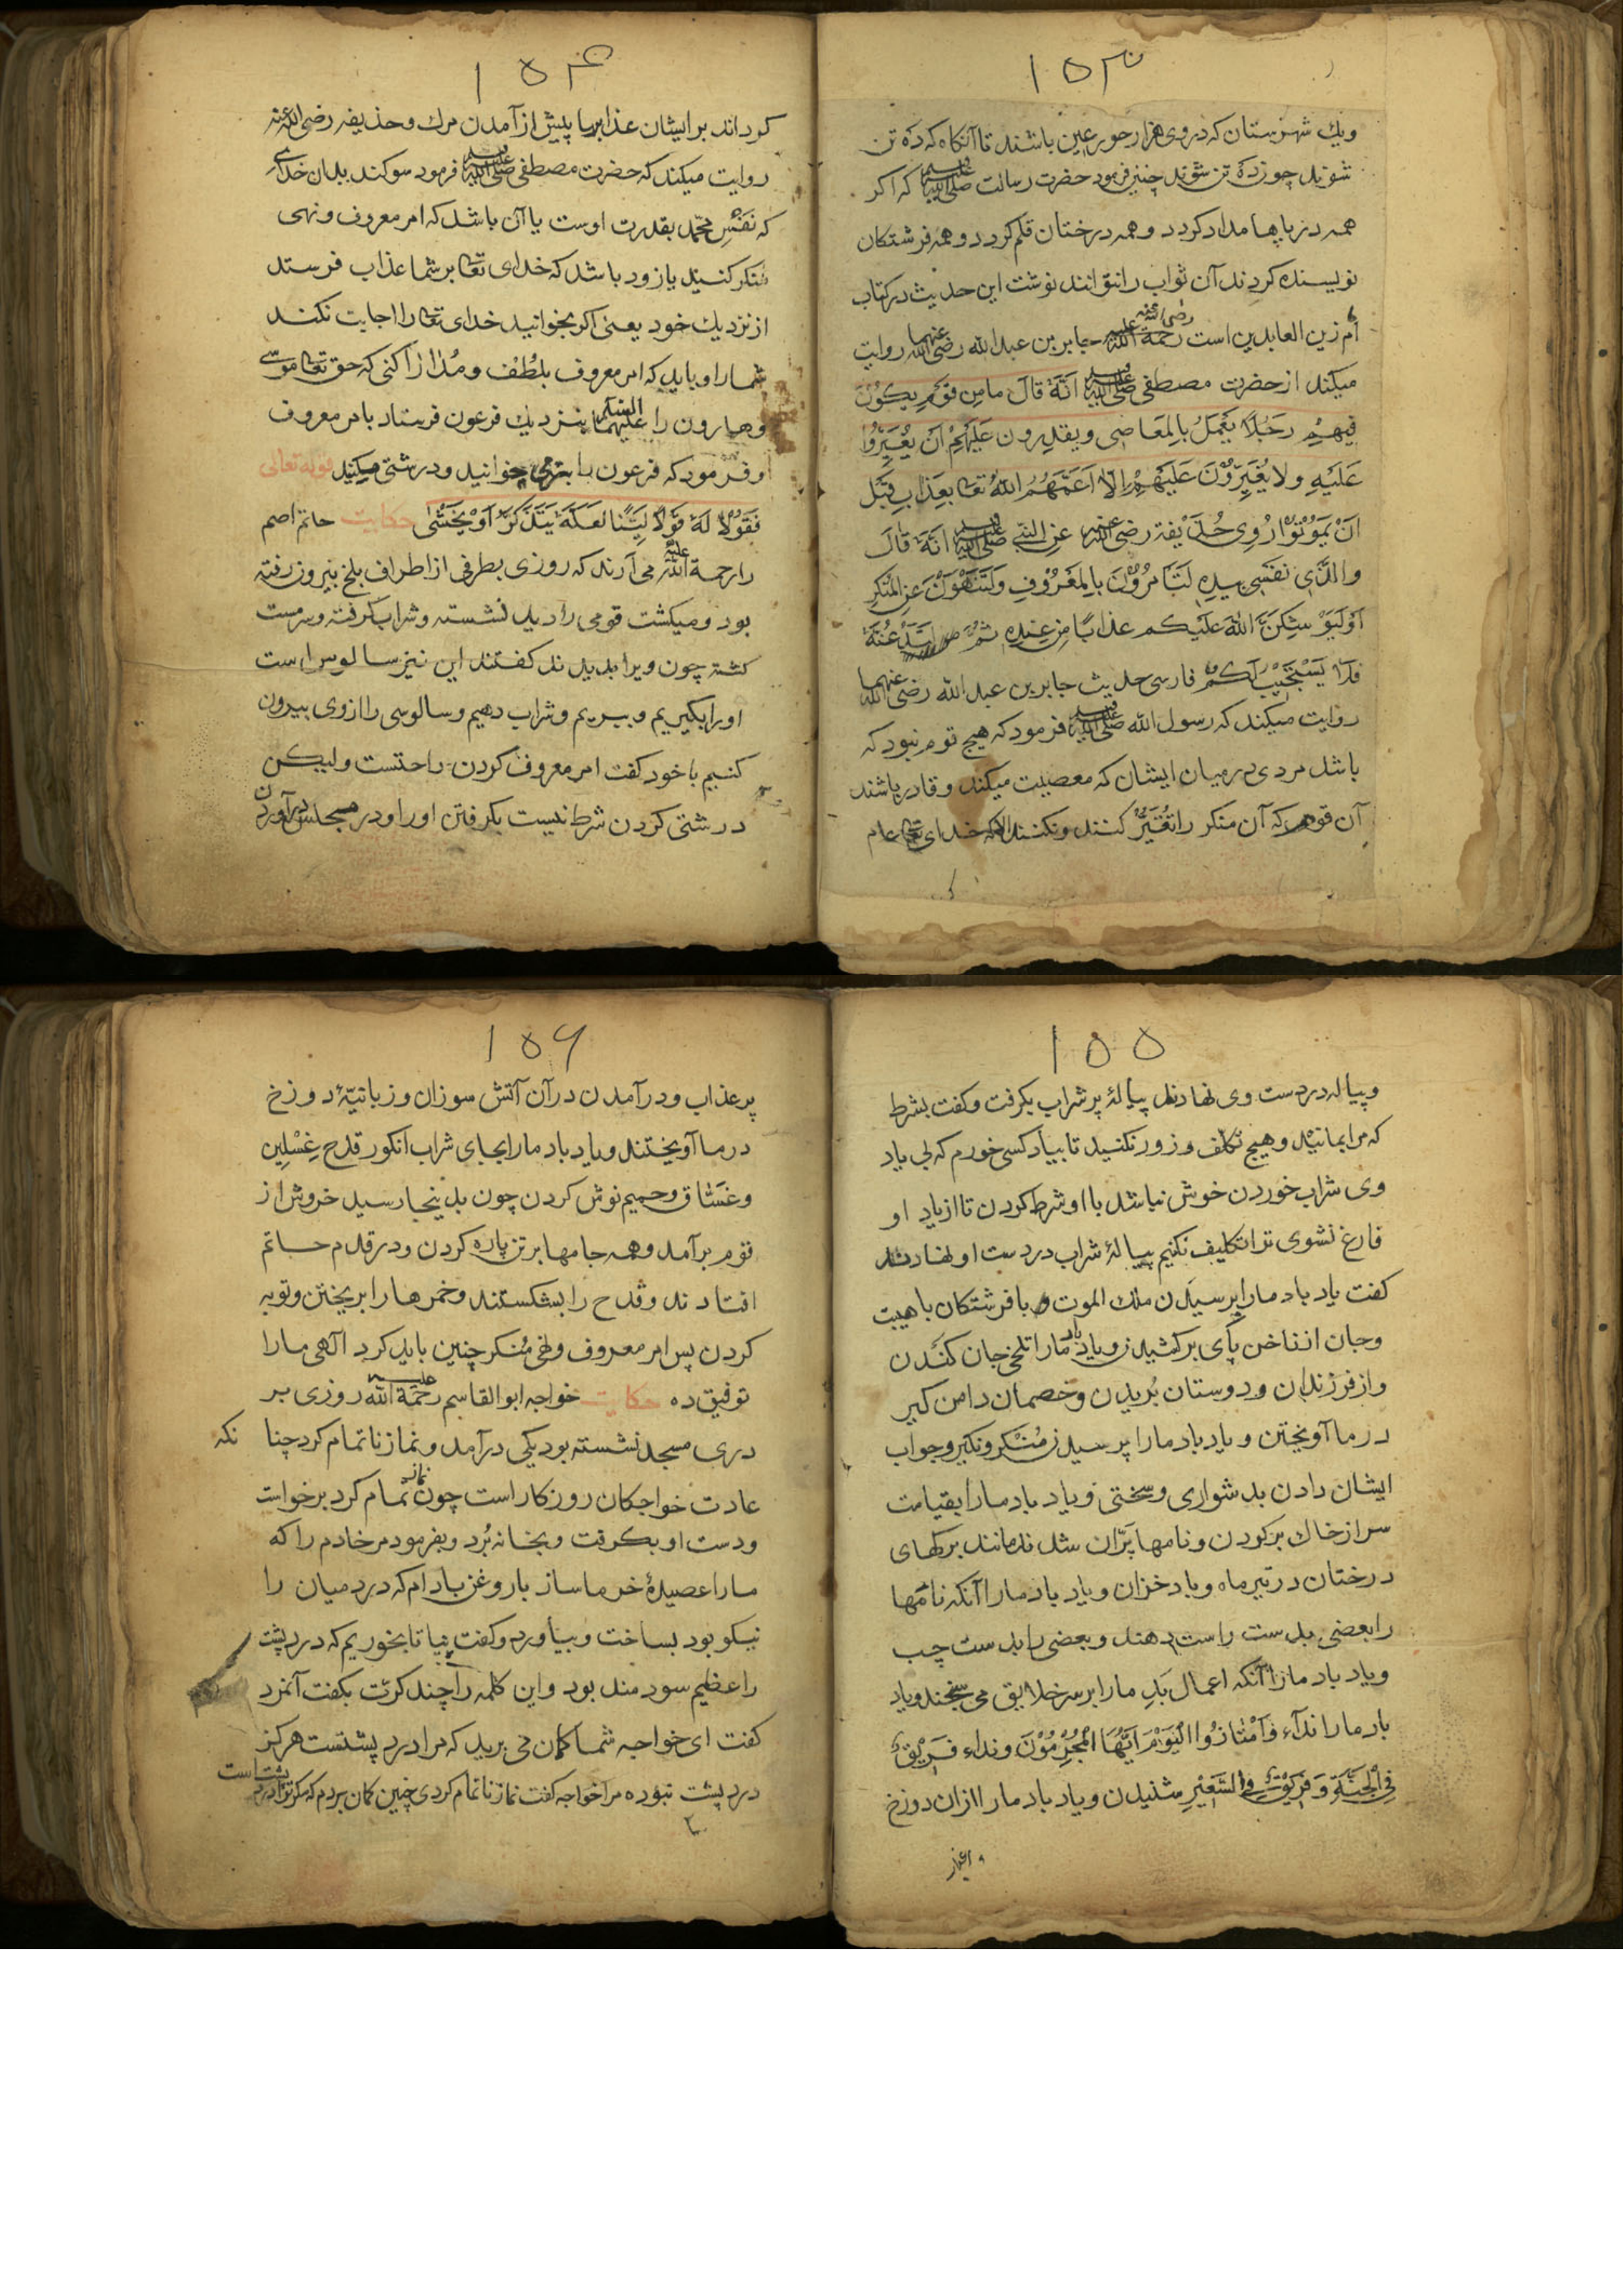 ۱۵۳
ویك شهرستان که در وی هزار حور عین باشند تا آنکاه که ده تن
شوند چون ده تن شوند چنین فرمود حضرت رسالت صلی الله علیه وسلم که اکر
همه دریاها مداد کردد وهمه درختان قلم کردد وهمه فرشتکان
نویسنده کردند آن ثواب را نتوانند نوشت این حدیث در کتاب
ام زین العابدین است رحمة الله علیه جابر بن عبد الله رضی الله عنهما روایت
میکند از حضرت مصطفی صلی الله علیه وسلم انَّهُ قالَ ما مِن قَومٍ یکُونُ
فیهِم رَجُلاً یَعْمَلُ بِالمَعَاصِی ویقدِرون عَلَیْهِمْ اَنْ یُغَیِّرُوا
عَلَیْهِ ولا یُغَیِّرُونَ عَلَیْهِمْ اِلَّا اَعَمَّهُمُ اللهُ تعا بِعَذابٍ قَبْلَ
اَنْ یَمُوتُوا رُوِی حُذَیْفَة رضی الله عنه عَنِ النبی صلی الله علیه وسلم انَّهُ قالَ
والَّذِی نَفْسِی بِیَدِهِ لَتَأمُرُونَ بِالمَعْرُوفِ وَلَتَنهَوْنَ عَنِ المُنْکَرِ
اَوْ لَیُوْشِکَنَّ اللهُ عَلَیْکم عذابًا مِن عِنْدِهِ ثُمَّ لَتَدْعُنَّهُ
فَلا یَسْتَجِیبُ لَکُم فارسی حدیث جابر بن عبد الله رضی الله عنهما
روایت میکند که رسول الله صلی الله علیه وسلم فرمود که هیچ قوم نبود که
باشد مردی در میان ایشان که معصیت میکند وقادر باشند
آن قوم که آن منکر را تغیّر کنند ونکنند الا که خدای تعا عام
۱۵۴
کرداند بر ایشان عذابرا پیش از آمدن مرك وحذیفه رضی الله عنه
روایت میکند که حضرت مصطفی صلی الله علیه وسلم فرمود سوکند بدان خدای
که نَفَسِ محمّد بقدرت اوست یا آن باشد که امر معروف ونهی
مُنکر کنید یا زود باشد که خدای تعا بر شما عذاب فرستد
از نزدیك خود یعنی اکر بخوانید خدای تعا را اجابت نکند
شما را وباید که امر معروف بلُطْف ومُدارا کنی که حق تعا موسی
وهارون را علیهما السلم بنزدیك فرعون فرستاد بامر معروف
وفرمود که فرعون را بنرمی خوانید ودرشتی مکنید قوله تعالی
فَقُوْلَا لَهُ قَوْلًا لَیِّنًا لَعَلَّهُ یَتَذَکَّرُ اَوْ یَخْشٰی حکایت حاتم اصم
را رحمة الله علیه می آرند که روزی بطرفی از اطراف بلخ بیرون رفته
بود ومیکشت قومی را دید نشسته وشراب کرفته وسرمست
کشته چون ویرا بدیدند کفتند این نیز سالوس است
اورا بکیریم وببریم وشراب دهیم وسالوسی را از وی بیرون
کنیم با خود کفت امر معروف کردن راحتست ولیکن
درشتی کردن شرط نیست بکرفتن اورا ودر مجلس در آوردن
۱۵۵
وپیاله در دست وی نهادند پیالهٔ پر شراب بکرفت وکفت بشرط
که مرا بمانید وهیچ تکلف وزور نکنید تا بیاد کسی خورم که بی یاد
وی شراب خوردن خوش نباشد با او شرط کردن تا از یاد او
فارغ نشوی ترا تکلیف نکنیم پیالهٔ شراب در دست او نهادند
کفت یاد باد مارا پرسیدن ملك الموت با فرشتکان با هیبت
وجان از ناخن پای بر کشیدن ویاد باد مارا تلخی جان کندن
واز فرزندان ودوستان بُریدن وخصمان دامن کیر
در ما آویختن ویاد باد مارا پرسیدن مُنْکر ونکیر وجواب
ایشان دادن بدشواری وسختی ویاد باد مارا بقیامت
سر از خاك بر کردن ونامها پرّان شدند مانند برکهای
درختان در تیرماه وباد خزان ویاد باد مارا آنکه نامها
را بعضی بدست راست دهند وبعضی را بدست چب
ویاد باد مارا آنکه اعمال بَدِ مارا بر سر خلایق می سنجند ویاد
باد مارا نداء وَامْتَازُوا الْیَوْمَ اَیُّهَا الْمُجْرِمُوْنَ ونداء فَرِیْقٌ
فِی الْجَنَّةِ وَفَرِیْقٌ فِی السَّعِیْرِ شنیدن ویاد باد مارا ازان دوزخ
۱۵۶
پر عذاب ودر آمدن در آن آتش سوزان وزبانیهٔ دوزخ
در ما آویختند ویاد باد مارا بجای شراب انکور قدح غِسْلِین
وغسّاق وحمیم نوش کردن چون بدینجا رسید خروش از
قوم برآمد وهمه جامها بر تن پاره کردن ودر قدم حاتم
افتادند وقدح را بشکستند وخمرها را بریختن وتوبه
کردن پس امر معروف ونهی مُنکر چنین باید کرد الهی مارا
توفیق ده حکایت خواجه ابو القاسم رحمة الله علیه روزی بر
دری مسجد نشسته بود یکی درآمد ونماز ناتمام کرد چنا نکه
عادت خواجکان روزکار است چون نماز تمام کرد برخواست
ودست او بکرفت وبخانه بُرد وبفرمود مر خادم را که
مارا عصیدهٔ خرما ساز با روغن بادام که درد میان را
نیکو بود بساخت وبیاورد وکفت بیا تا بخوریم که درد پشت
را عظیم سودمند بود واین کلمه را چند کرّت بکفت آنمرد
کفت ای خواجه شما کمان می برید که مرا درد پشتست هرکز
درد پشت نبوده مرا خواجه کفت نماز ناتمام کردی چنین کمان بردم که مکر ترا درد پشت است